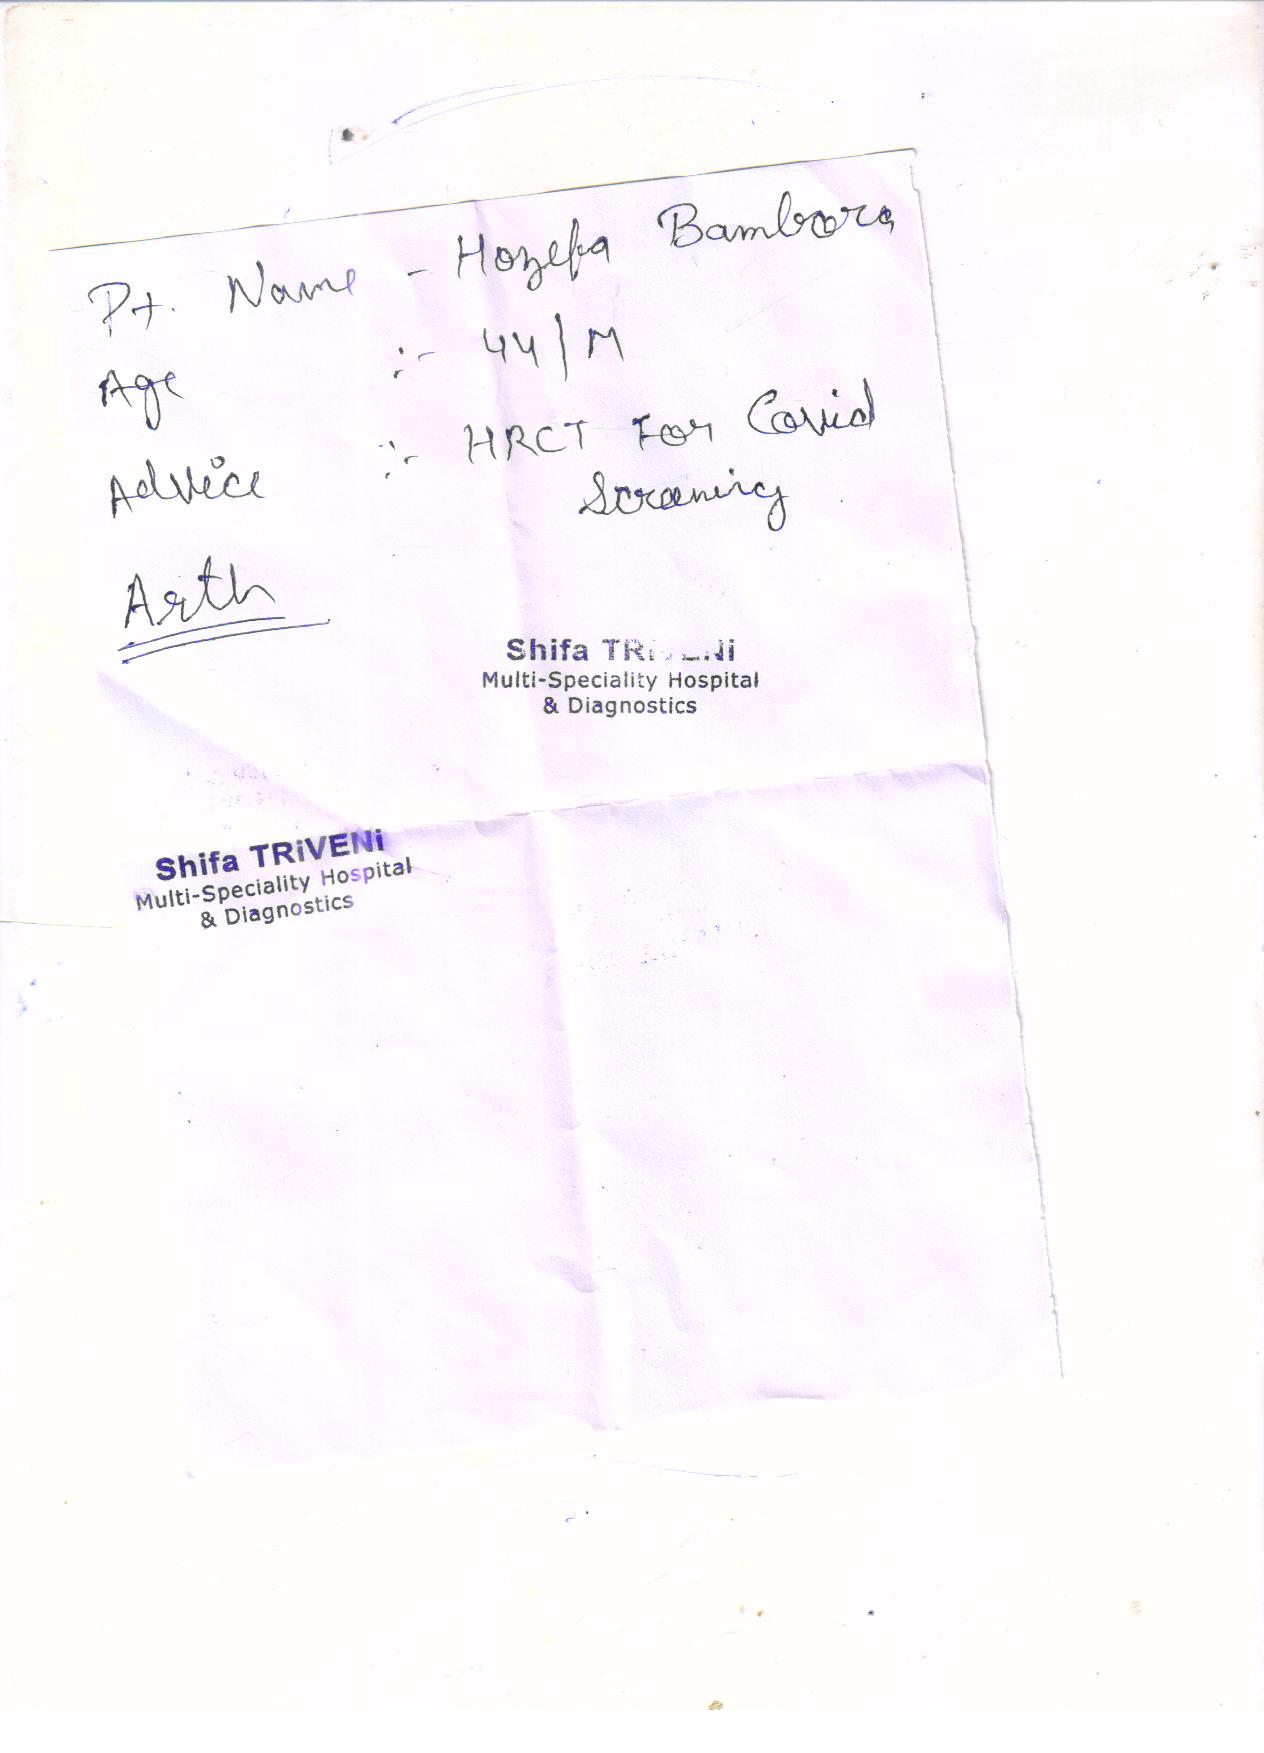 Pt. Name - Hozefa Bambora
Age :- 44/M
Advice :- HRCT For Covid
Screaning
Arth
Shifa TRiVENi
Multi-Speciality Hospital
& Diagnostics
Shifa TRiVENi
Multi-Speciality Hospital
& Diagnostics